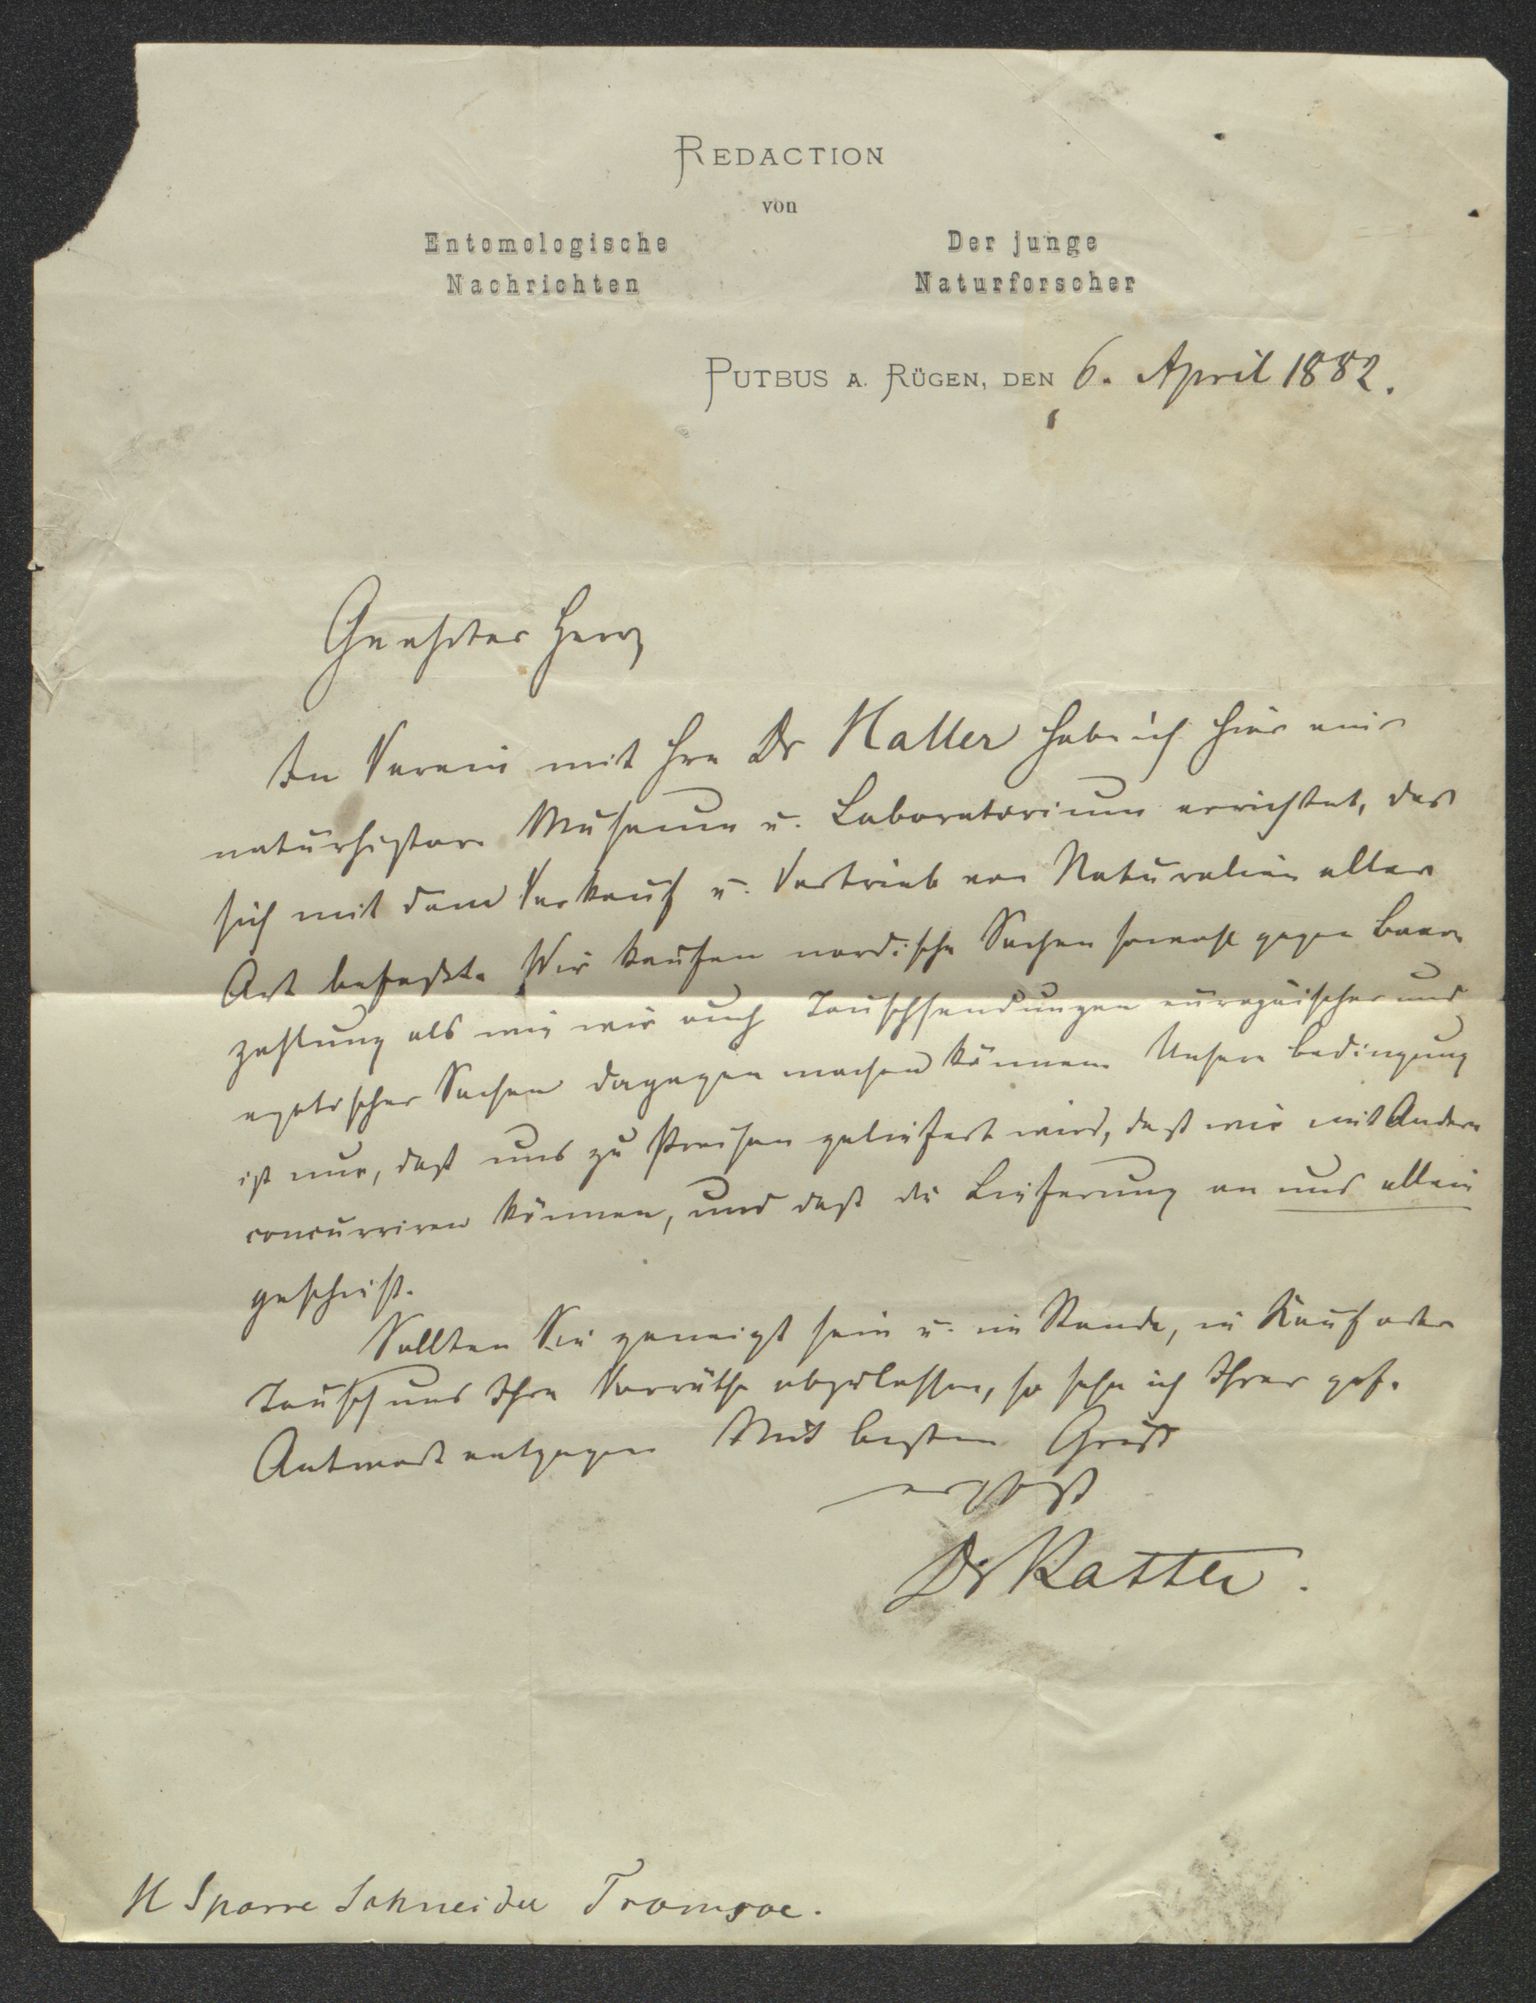 REDACTION
von
Entomologische
Nachrichten
Der junge
Naturforscher
PUTBUS A. RÜGEN, DEN 6. April 1882.
Geehrter Herr
In Verein mit Hrn Dr Haller habe ich hier ein
naturhistor. Museum u. Laboratorium errichtet, das
sich mit dem Verkauf u. Vertrieb von Naturalien aller
Art befaßt. Wir kaufen nordische Sachen sowohl gegen Baar
zahlung als wie wir auch Tauschsendungen europäischer und
exotischer Sachen dagegen machen können. Unsere Bedingung
ist nur, daß uns zu Preisen geliefert wird, daß wir mit Andern
concurriren können, und daß die Lieferung an uns allein
geschieht.
Sollten Sie geneigt sein u. im Stande, in Kauf oder
Tausch uns Ihre Vorräthe abzulassen, so sehe ich Ihrer gef.
Antwort entgegen Mit bestem Gruß
ergbst
Dr Katter.
H Sparre Schneider Tromsoe.